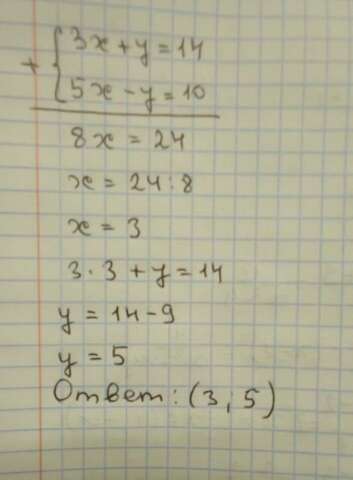 + { 3x + y = 14
5x - y = 10
8x = 24
x = 24 : 8
x = 3
3 · 3 + y = 14
y = 14 - 9
y = 5
Ответ: (3, 5)